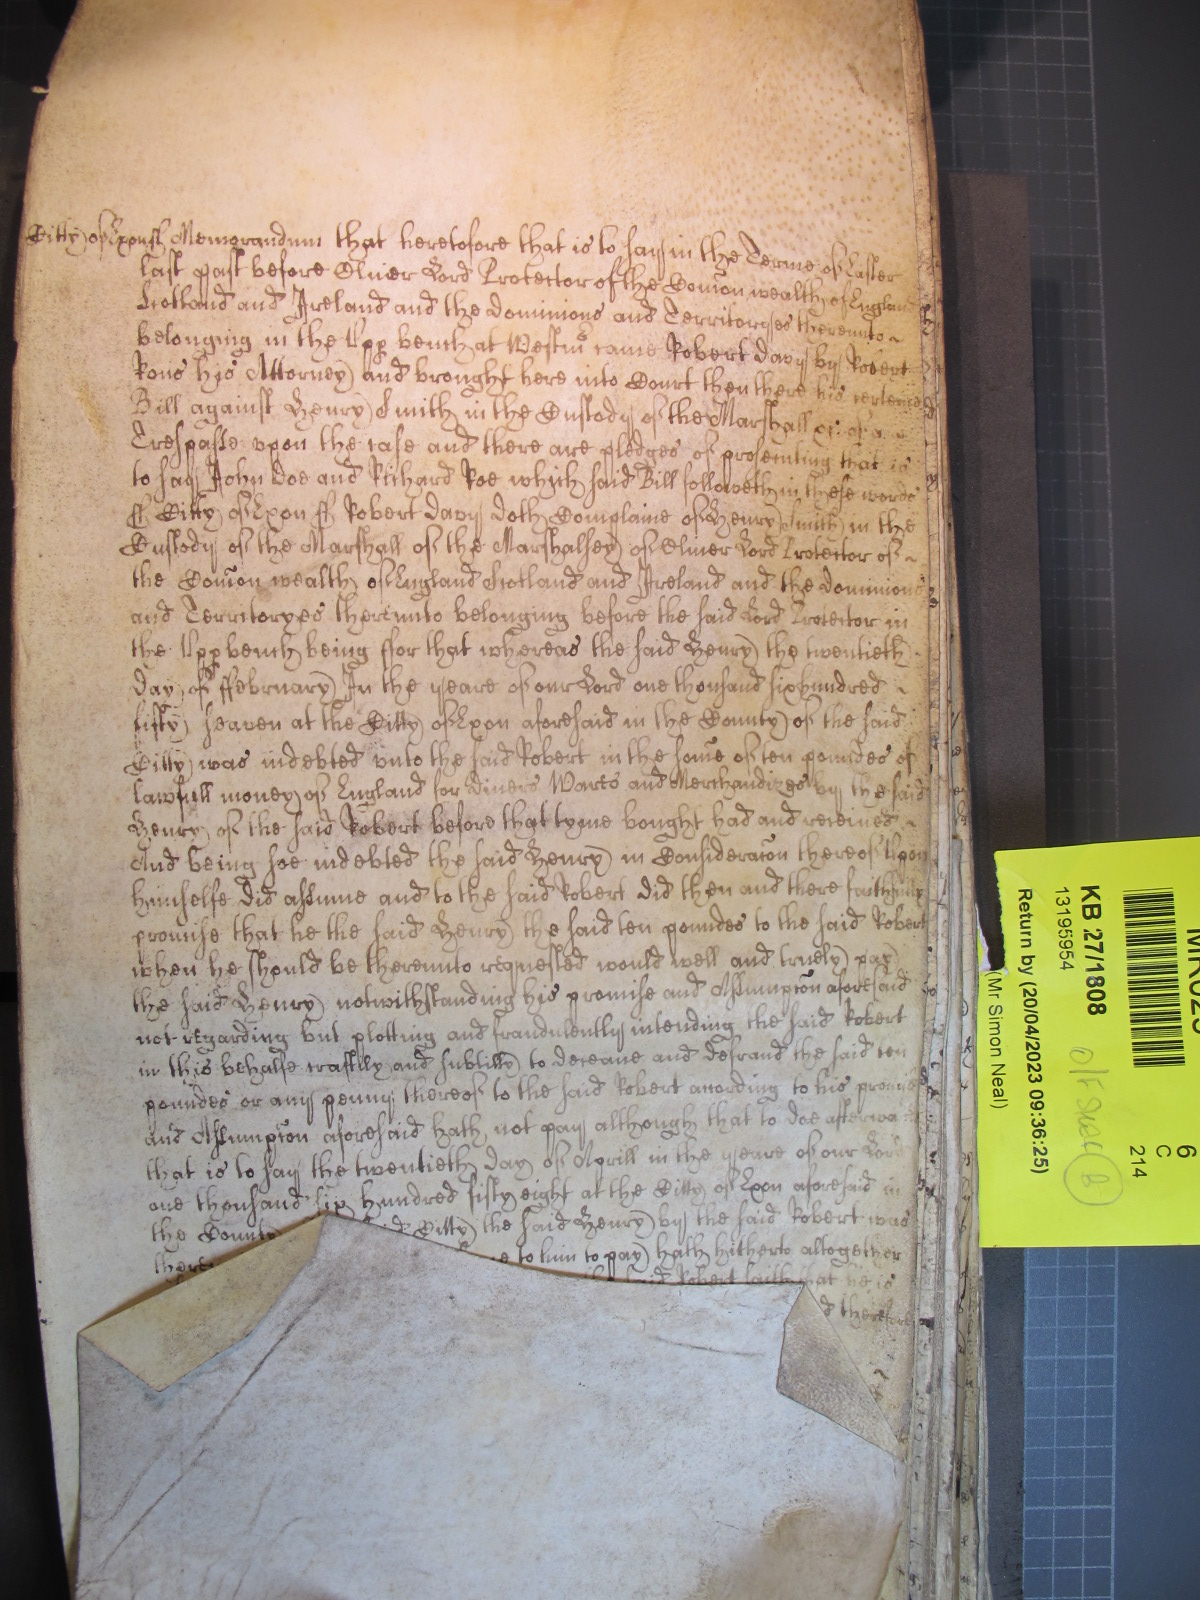 Citty of Exon ss Memorandum that heretofore that is to say in the Terme of Easter
last past before Oliver Lord Protector of the Comon wealth of England
Scotland and Ireland and the dominions and Territoryes thereunto
belonging in the Upp bench at Westmr came Robert Davy by Robert
his Attorney and brought here into Court then there his certeine
Bill against Henry Smith in the Custody of the Marshall &c of a
Trespasse upon the case and there are pledges of prosecuting that is
to say John Doe and Richard Roe which said Bill followeth in these words
ss Citty of Exon ss Robert Davy doth Complaine of Henry Smith in the
Custody of the Marshall of the Marshalsey of Oliver Lord Protector of
the Comon wealth of England Scotland and Ireland and the dominions
and Territoryes thereunto belonging before the said Lord Protector in
the Upp bench being ffor that whereas the said Henry the twentieth
day of ffebruary In the yeare of our Lord one thousand six hundred
fifty seaven at the Citty of Exon aforesaid in the County of the said
Citty was indebted unto the said Robert in the some of ten poundes of
lawfull money of England for divers Wares and Merchandizes by the said
Henry of the said Robert before that tyme bought had and received
And being soe indebted the said Henry in Consideracon thereof Upon
himselfe did assume and to the said Robert did then and there faithfully
promise that he the said Henry the said ten poundes to the said Robert
when he should be thereunto requested would well and truely pay
the said Henry notwithstanding his promise and Assumpcon aforesaid
not regarding but plotting and fraudulently intending the said Robert
in this behalfe craftily and subtilly to deceave and defraud the said ten
poundes or any penny thereof to the said Robert according to his promise
and Assumpcon aforesaid hath not pay although that to doe afterwa
that is to say the twentieth day of Aprill in the yeare of our Lord
one thousand six hundred fifty eight at the Citty of Exon aforesaid in
the County said Citty the said Henry by the said Robert was
there to him to pay hath hitherto altogether
said Robert saith that he is
therefore
6
C
214
KB 27/1808
13195954
Return by (20/04/2023 09:36:25)
(Mr Simon Neal)
B